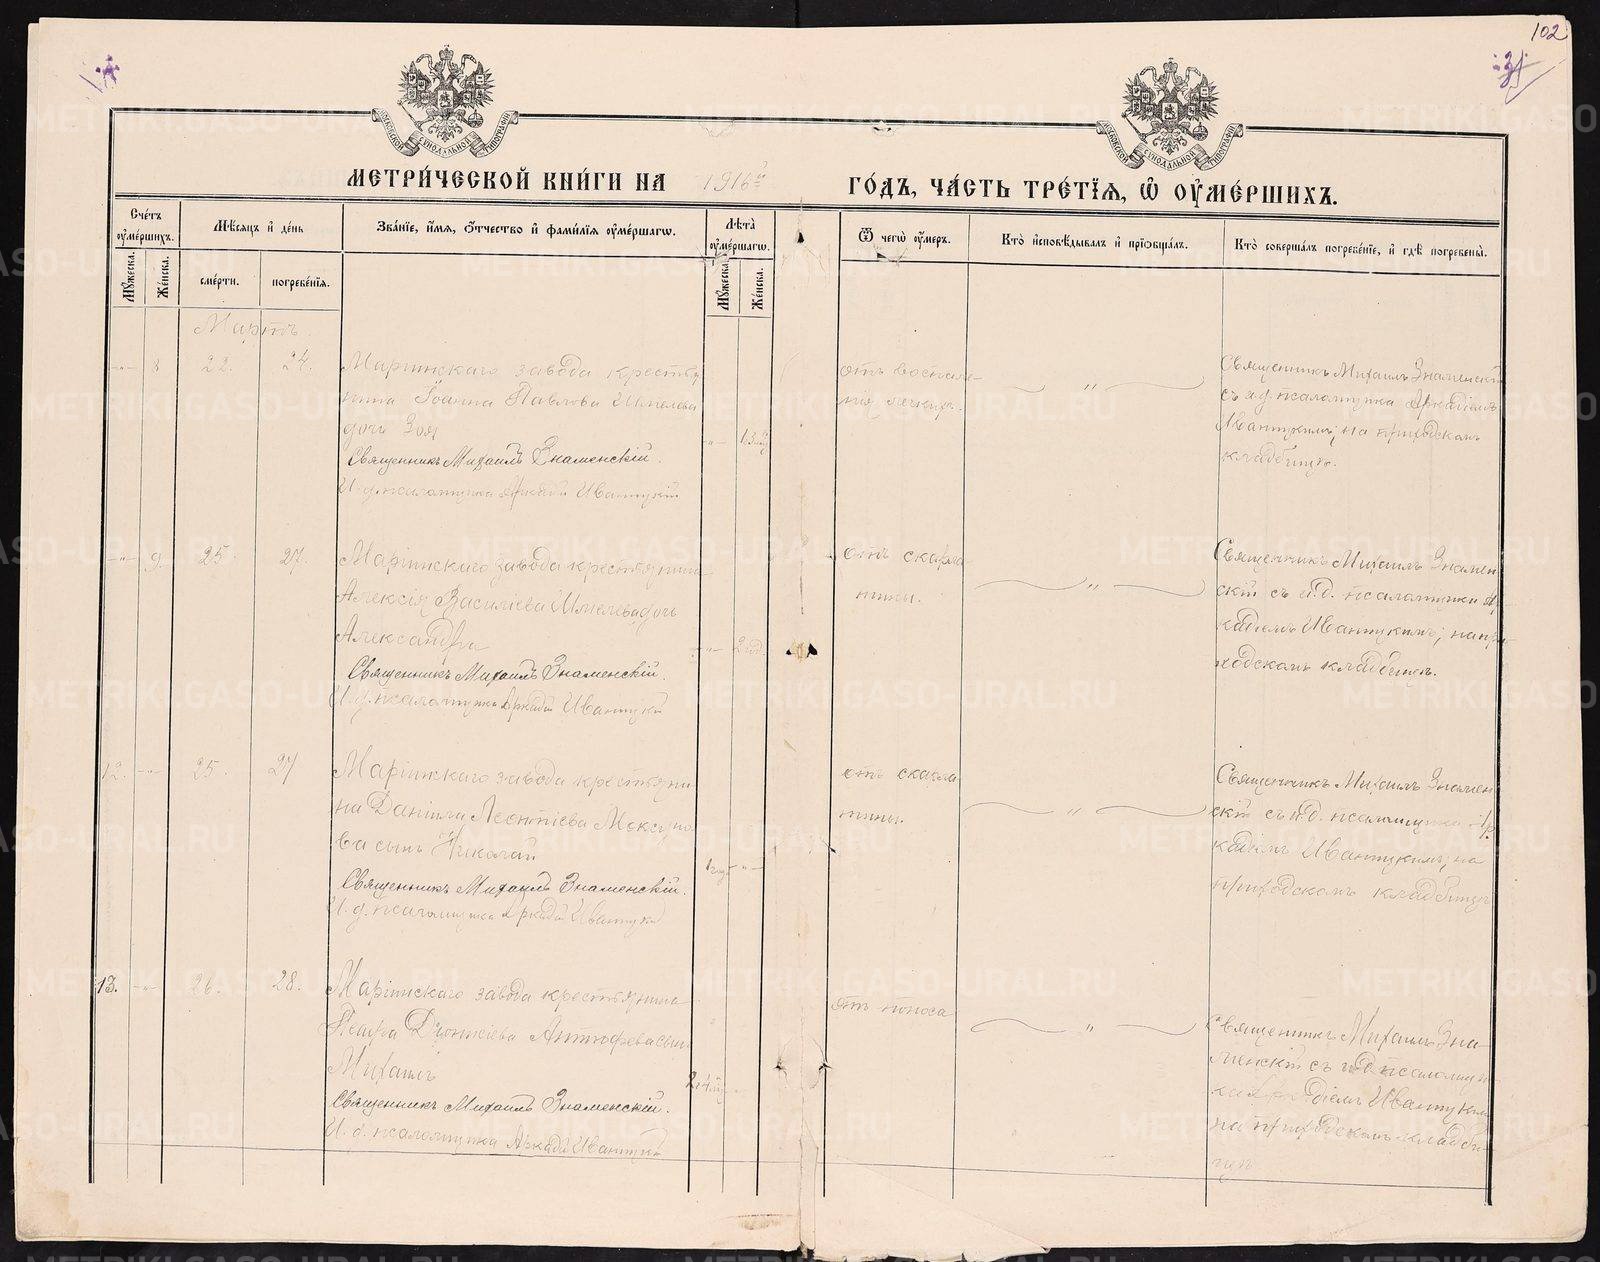 102
МОСКОВСКОЙ СѴНОДАЛЬНОЙ ТИПОГРАФІИ
МОСКОВСКОЙ СѴНОДАЛЬНОЙ ТИПОГРАФІИ
МЕТРИ́ЧЕСКОЙ КНИ́ГИ НА 1916й ГО́ДЪ, ЧА́СТЬ ТРЕ́ТЇѦ, Ѿ ОУ҆МЕ́РШИХЪ.
Сче́тъ оу҆ме́ршихъ.
Мꙋ́жеска.
Же́нска.
Мѣ́сѧцъ и҆ де́нь
сме́рти.
погребе́нїѧ.
Зва́нїе, и҆́мѧ, ѻ҆́тчество и҆ фами́лїѧ оу҆ме́ршагѡ.
Лѣ́та оу҆ме́ршагѡ.
Мꙋ́жеска.
Же́нска.
Ѿ чегѡ̀ оу҆́меръ.
Кто̀ и҆сповѣ́дывалъ и҆ прїѡбща́лъ.
Кто̀ соверша́лъ погребе́нїе, и҆ гдѣ̀ погребены̀.
Мартъ.
-„- 8 22. 24.
Маріинскаго завода крестья
нина Іоанна Павлова Шмелева
дочь Зоя
Священникъ Михаилъ Знаменскій.
И. д. псаломщика Аркадій Иваницкій
-„- 13
отъ воспале-
нія легкихъ.
„
Священникъ Михаилъ Знаменскій
съ и. д. псаломщика Аркадіемъ
Иваницкимъ, на приходскомъ
кладбищѣ.
-„- 9. 25. 27.
Маріинскаго завода крестьянина
Алексія Василіева Шмелева дочь
Александра
Священникъ Михаилъ Знаменскій.
И. д. псаломщика Аркадій Иваницкій
-„- 2 год.
отъ скарла-
тины.
„
Священникъ Михаилъ Знамен
скій съ и. д. псаломщика Ар
кадіемъ Иваницкимъ, на при
ходскомъ кладбищѣ.
12. -„- 25. 27
Маріинскаго завода крестьяни
на Даніила Леонтіева
ва сынъ Николай
Священникъ Михаилъ Знаменскій.
И. д. псаломщика Аркадій Иваницкій
1 год -„-
отъ скарла
тины.
„
Священникъ Михаилъ Знамен
скій съ и. д. псаломщика Ар
кадіемъ Иваницкимъ, на
приходскомъ кладбищѣ
13. -„- 26. 28.
Маріинскаго завода крестьянина
Петра Діонисіева сынъ
Михаилъ
Священникъ Михаилъ Знаменскій.
И. д. псаломщика Аркадій Иваницкій
отъ поноса
„
Священникъ Михаилъ Зна-
менскій съ и. д. псаломщи
ка Аркадіемъ Иваницкимъ
на приходскомъ кладби-
щѣ
METRIKI.GASO-URAL.RU